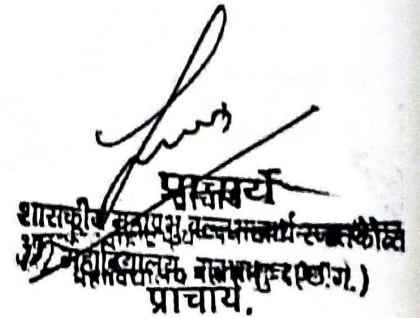 प्राचार्य
शासकीय महाप्रभु वल्लभाचार्य स्नातकोत्तर
महाविद्यालय (छ.ग.)
प्राचार्य.